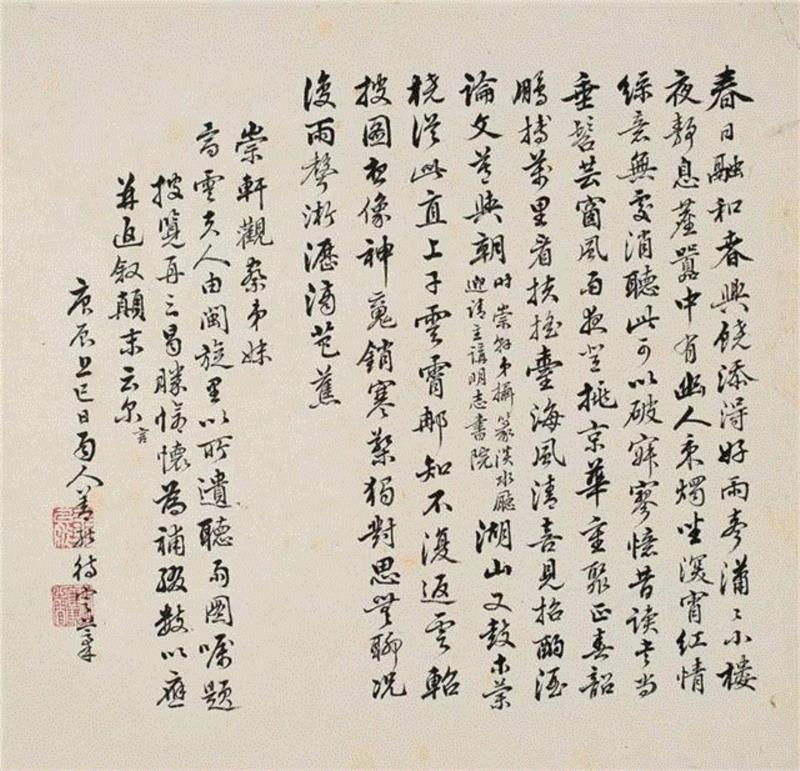 春日融和春興饒添得好雨夸瀟〻小樓
夜靜息塵囂中有幽人秉燭坐深宵紅情
綠意無處消聽此可以破寂寥憶昔讀書當
垂髫芸窗風雨夜登挑京華重聚正春韶
鵬摶萬里看扶搖臺海風清喜見招酌酒
論文蓋與朝
時崇軒弟攝篆淡水廳
邀請主講明志書院
湖山又鼓木蘭
橈從此直上子雲霄那知不復返雲軺
披圖夜像神魂銷寒檠獨對思無聊況
復雨聲淅瀝滴芭蕉
崇軒觀察弟妹
高雲夫人由閩旋里以所遺聽雨圖囑題
披覽再三曷勝愴懷為補綴數以應
并返敘顛末云尔
言
庚辰上巳日